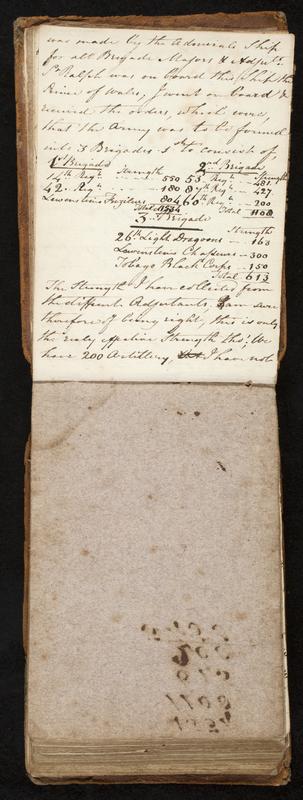 was made by the Admirals Ship
for all Brigade Majors & Adjuts.
Sr Ralph was on board this Ship the
Prince of Wales, I went on board &
received the orders, which were,
that the Army was to be formed
into 3 Brigades 1st to consist of
1st Brigade 2nd Brigade
Strength Strength
14th Regt 550 53 Regt 481
42 Regt 180 8th Regt 427
Lowensteins Fuziliers 804 60th Regt 200
Total 1534 Total 1108
3d Brigade
Strength
26th Light Dragoons 163
Lowensteins Chasseurs 300
Tobago Black Corps 150
Total 613
The Strength I have collected from
the different Adjutants, I am sure
therefore of being right, this is only
the realy effective Strength tho', We
have 200 Artillery, I have not